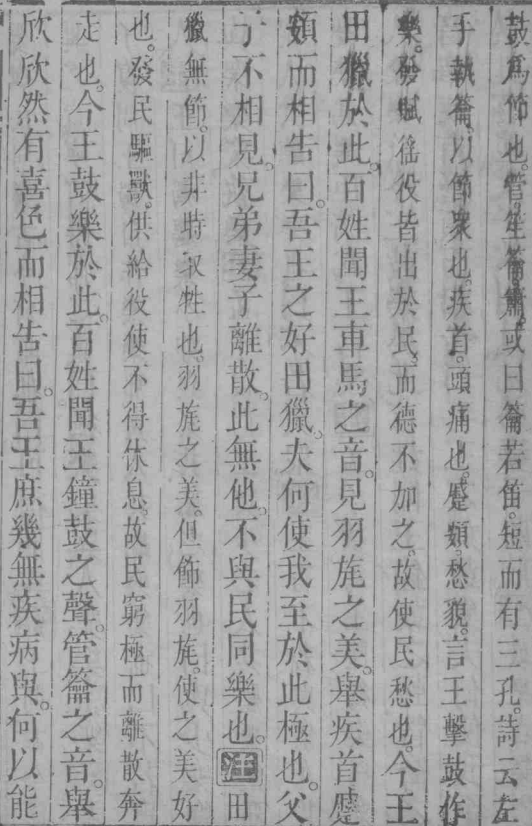 鼓爲節也。管笙籥簫。或曰籥若笛。短而有三孔。詩云左
手執籥。以節衆也。疾首。頭痛也。蹙頞。愁貌。言王擊鼓作
樂。發賦徭役皆出於民。而德不加之。故使民愁也。今王
田獵於此。百姓聞王車馬之音。見羽旄之美。舉疾首蹙
頞而相告曰。吾王之好田獵。夫何使我至於此極也。父
子不相見。兄弟妻子離散。此無他。不與民同樂也。注田
獵無節。以非時取牲也。羽旄之美。但飾羽旄。使之美好
也。發民驅獸。供給役使不得休息。故民窮極而離散奔
走也。今王鼓樂於此。百姓聞王鐘鼓之聲。管籥之音。舉
欣欣然有喜色而相告曰。吾王庶幾無疾病與。何以能